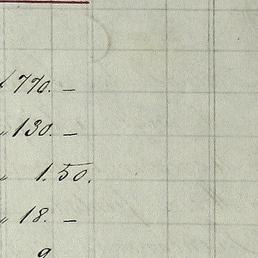 f 770. –
„ 130. –
„ 1.50.
„ 18. –
9